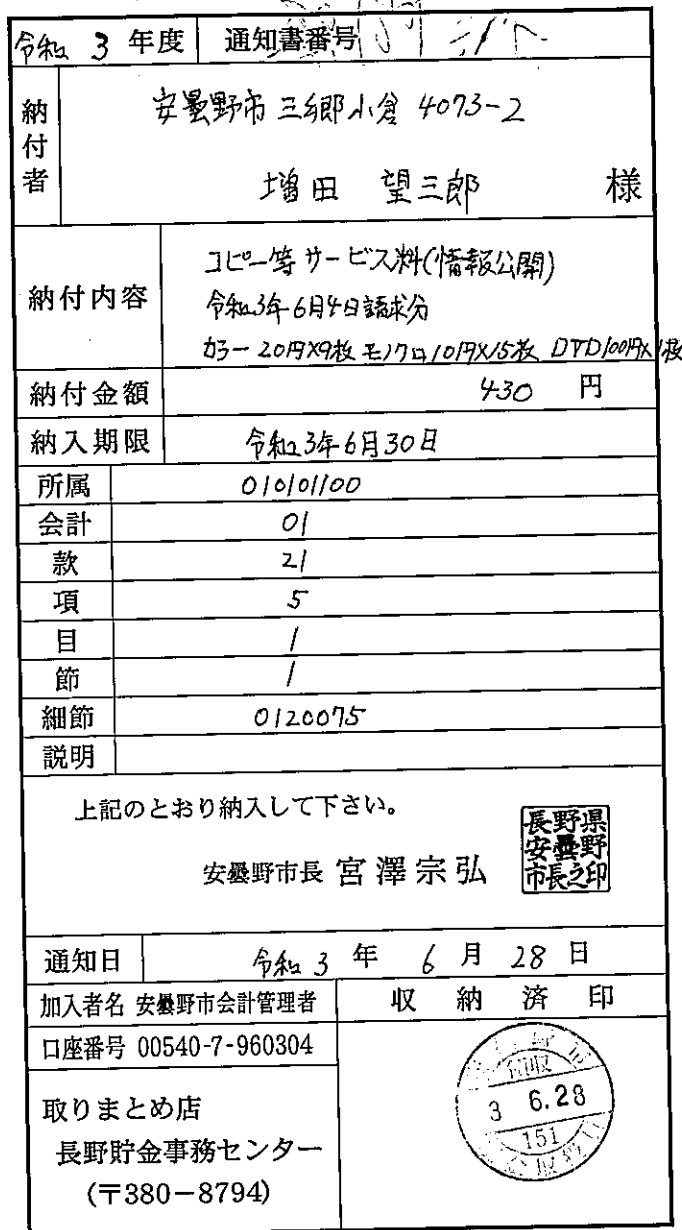 令和 3 年度 通知書番号
納付者
安曇野市三郷小倉 4073-2
増田 望三郎 様
納付内容
コピー等サービス料(情報公開)
令和3年6月4日請求分
カラー20円×9枚 モノクロ10円×15枚 DVD100円×1枚
納付金額 430 円
納入期限 令和3年6月30日
所属 010101100
会計 01
款 21
項 5
目 1
節 1
細節 0120075
説明
上記のとおり納入して下さい。
安曇野市長 宮澤宗弘
長野県
安曇野
市長之印
通知日 令和3 年 6 月 28 日
加入者名 安曇野市会計管理者 収納済印
口座番号 00540-7-960304
領収
3 6.28
151
取りまとめ店
長野貯金事務センター
(〒380-8794)